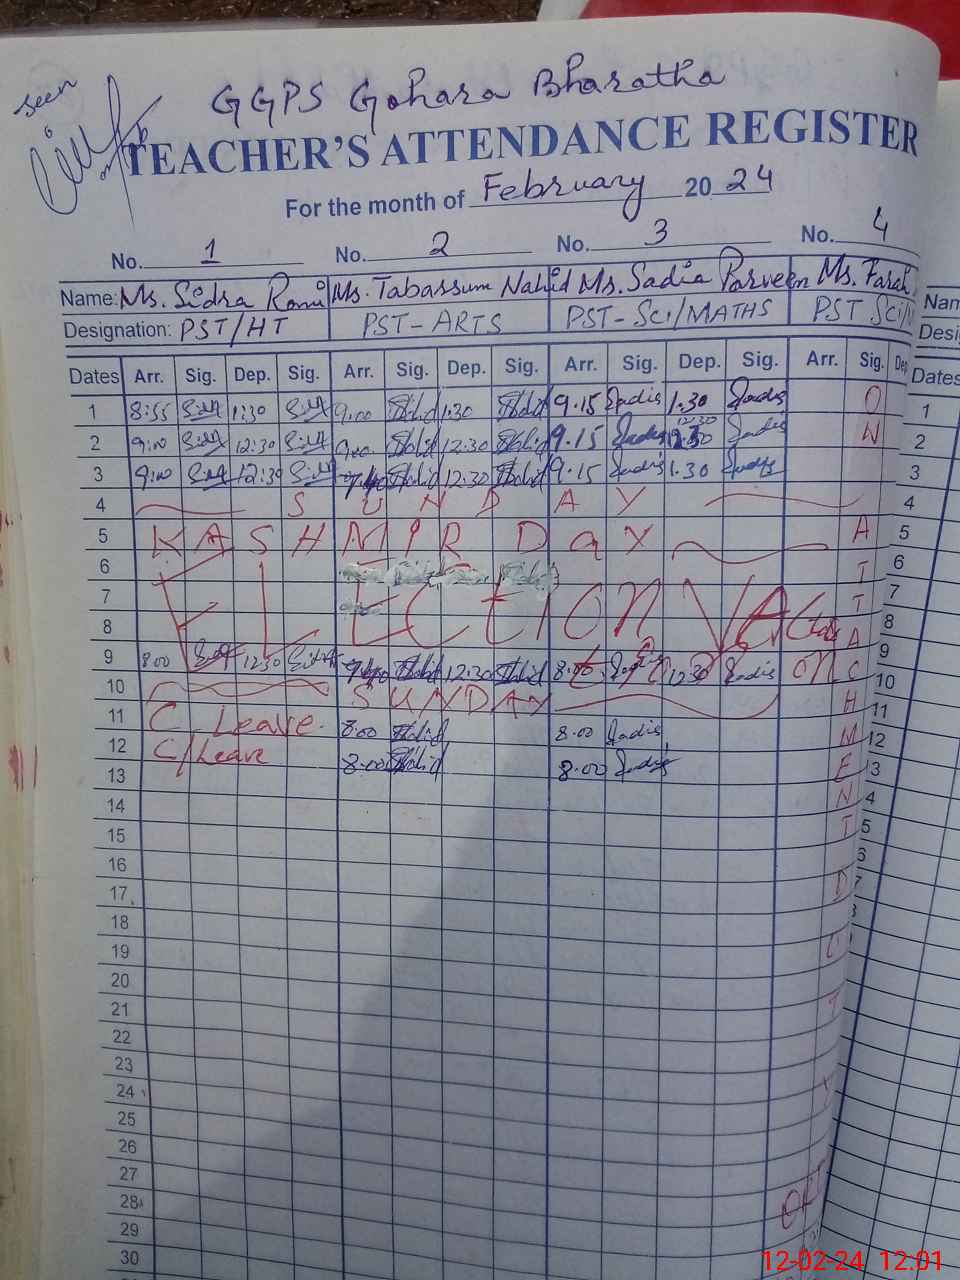 seen
GGPS Gohara Bharatha
TEACHER'S ATTENDANCE REGISTER
For the month of February 20 24
No. 1 No. 2 No. 3 No. 4
Name: Ms. Sidra Rani Ms. Tabassum Nahid Ms. Sadia Parveen Ms. Farah
Designation: PST/HT PST-ARTS PST-Sci/MATHS PST Sci/
Dates Arr. Sig. Dep. Sig. Arr. Sig. Dep. Sig. Arr. Sig. Dep. Sig. Arr. Sig. Dep
1 8:55 1:30 9:00 1:30 9.15 Sadia 1.30 Sadia O
2 9:00 12:30 9:00 12:30 9.15 Sadia 12.30 Sadia N
3 9:00 12:30 12:30 9.15 Sadia 1.30 Sadia
4 SUNDAY
5 KASHMIR DAY A
6 T
7 ELECTION VACATION T
8 A
9 8:00 12:30 12:30 8:00 12:30 Sadia C
10 SUNDAY H
11 C Leave. 8:00 8.00 Sadia M
12 C/Leave 8:00 8.00 Sadia E
13 N
14 T
15
16 D
17
18 U
19
20 T
21
22 Y
23
24
25
26
27
28
29
30
Nam
Desig
Dates
1
2
3
4
5
6
7
8
9
10
11
12
13
4
5
6
7
12-02-24 12:01